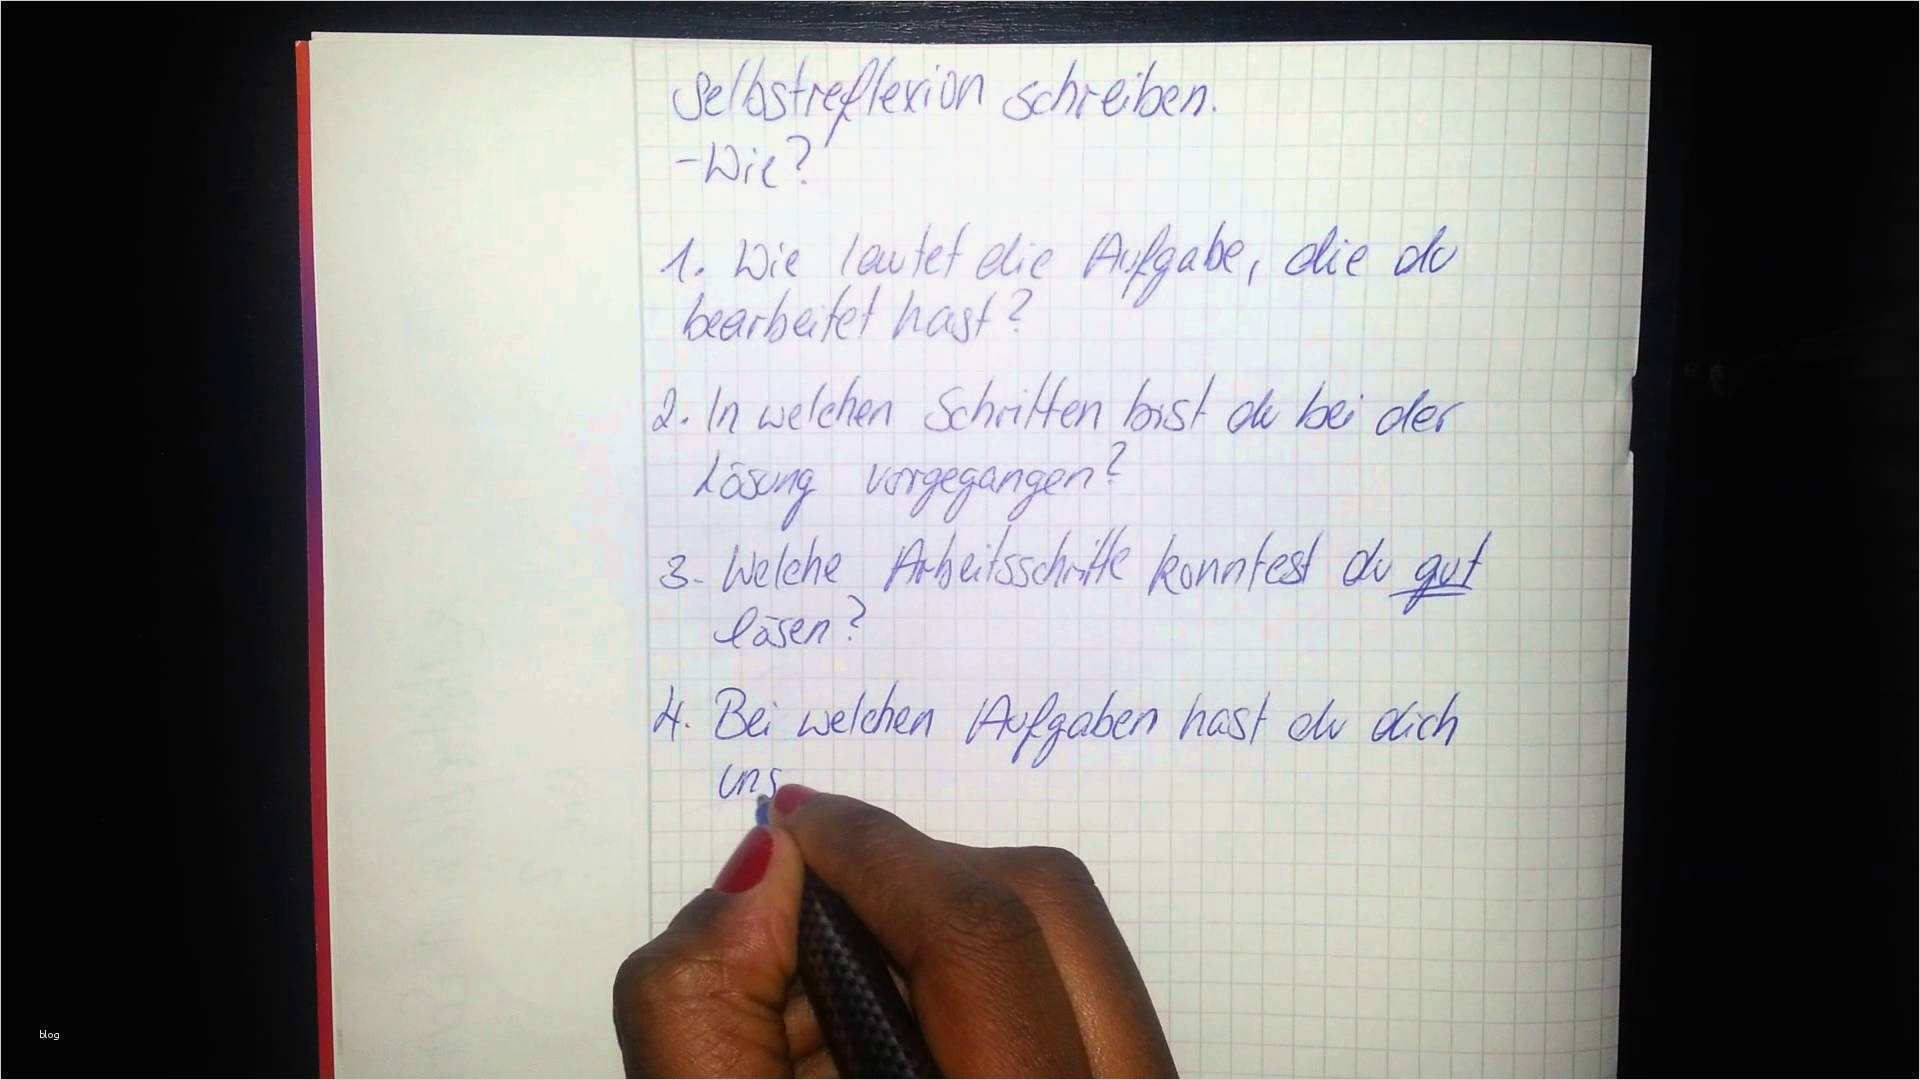 Selbstreflexion schreiben.
- Wie?
1. Wie lautet die Aufgabe, die du
bearbeitet hast?
2. In welchen Schritten bist du bei der
Lösung vorgegangen?
3. Welche Arbeitsschritte konntest du gut
lösen?
4. Bei welchen Aufgaben hast du dich
uns
blog